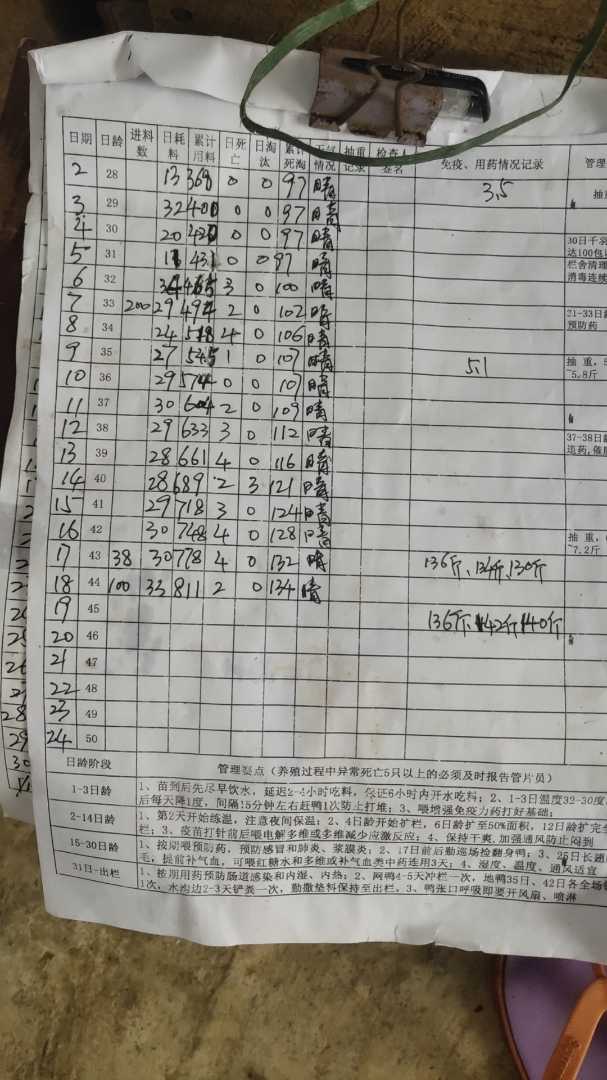 日期 日龄 进料数 日耗料 累计用料 日死亡 日淘汰 累计死淘 天气情况 抽重记录 检查人签名 免疫、用药情况记录 管理
2 28 13 368 0 0 97 晴 3.5 抽重
3 29 32 400 0 0 97 晴
4 30 20 420 0 0 97 晴 30日千羽
达100包
5 31 11 431 0 0 97 晴 栏舍清理
消毒连续
6 32 34 465 3 0 100 晴
7 33 200 29 494 2 0 102 晴 21-33日龄
预防药
8 34 24 518 4 0 106 晴
9 35 27 545 1 0 107 晴 5.1 抽 重，
~5.8斤
10 36 29 574 0 0 107 晴
11 37 30 604 2 0 109 晴
12 38 29 633 3 0 112 晴 37-38日龄
追药，催
13 39 28 661 4 0 116 晴
14 40 28 689 2 3 121 晴
15 41 29 718 3 0 124 晴
16 42 30 748 4 0 128 晴 抽 重，
~7.2斤
17 43 38 30 778 4 0 132 晴 136斤、134斤、130斤
18 44 100 33 811 2 0 134 晴
19 45 136斤、142斤 140斤
20 46
21 47
22 48
23 49
24 50
日龄阶段 管理要点（养殖过程中异常死亡5只以上的必须及时报告管片员）
1-3日龄 1、苗到后先尽早饮水，延迟2-4小时吃料，保证6小时内开水吃料；2、1-3日温度32-30度
后每天降1度，间隔15分钟左右赶鸭1次防止打堆；3、喂增强免疫力药打好基础；
2-14日龄 1、第2天开始练温，注意夜间保温；2、4日龄开始扩栏，6日龄扩至50%面积，12日龄扩完全
栏；3、疫苗打针前后喂电解多维或多维减少应激反应；4、保持干爽，加强通风防止闷到
15-30日龄 1、按期喂预防药，预防感冒和肺炎、浆膜炎；2、17日前后勤巡场捡翻身鸭；3、25日长通
毛，提前补气血，可喂红糖水和多维或补气血类中药连用3天；4、湿度、温度、通风适宜
31日-出栏 1、按期用药预防肠道感染和内湿、内热；2、网鸭4-5天冲栏一次，地鸭35日、42日各全场铲
1次，水沟边2-3天铲粪一次，勤撒垫料保持至出栏。3、鸭张口呼吸即要开风扇、喷淋
28
29
30